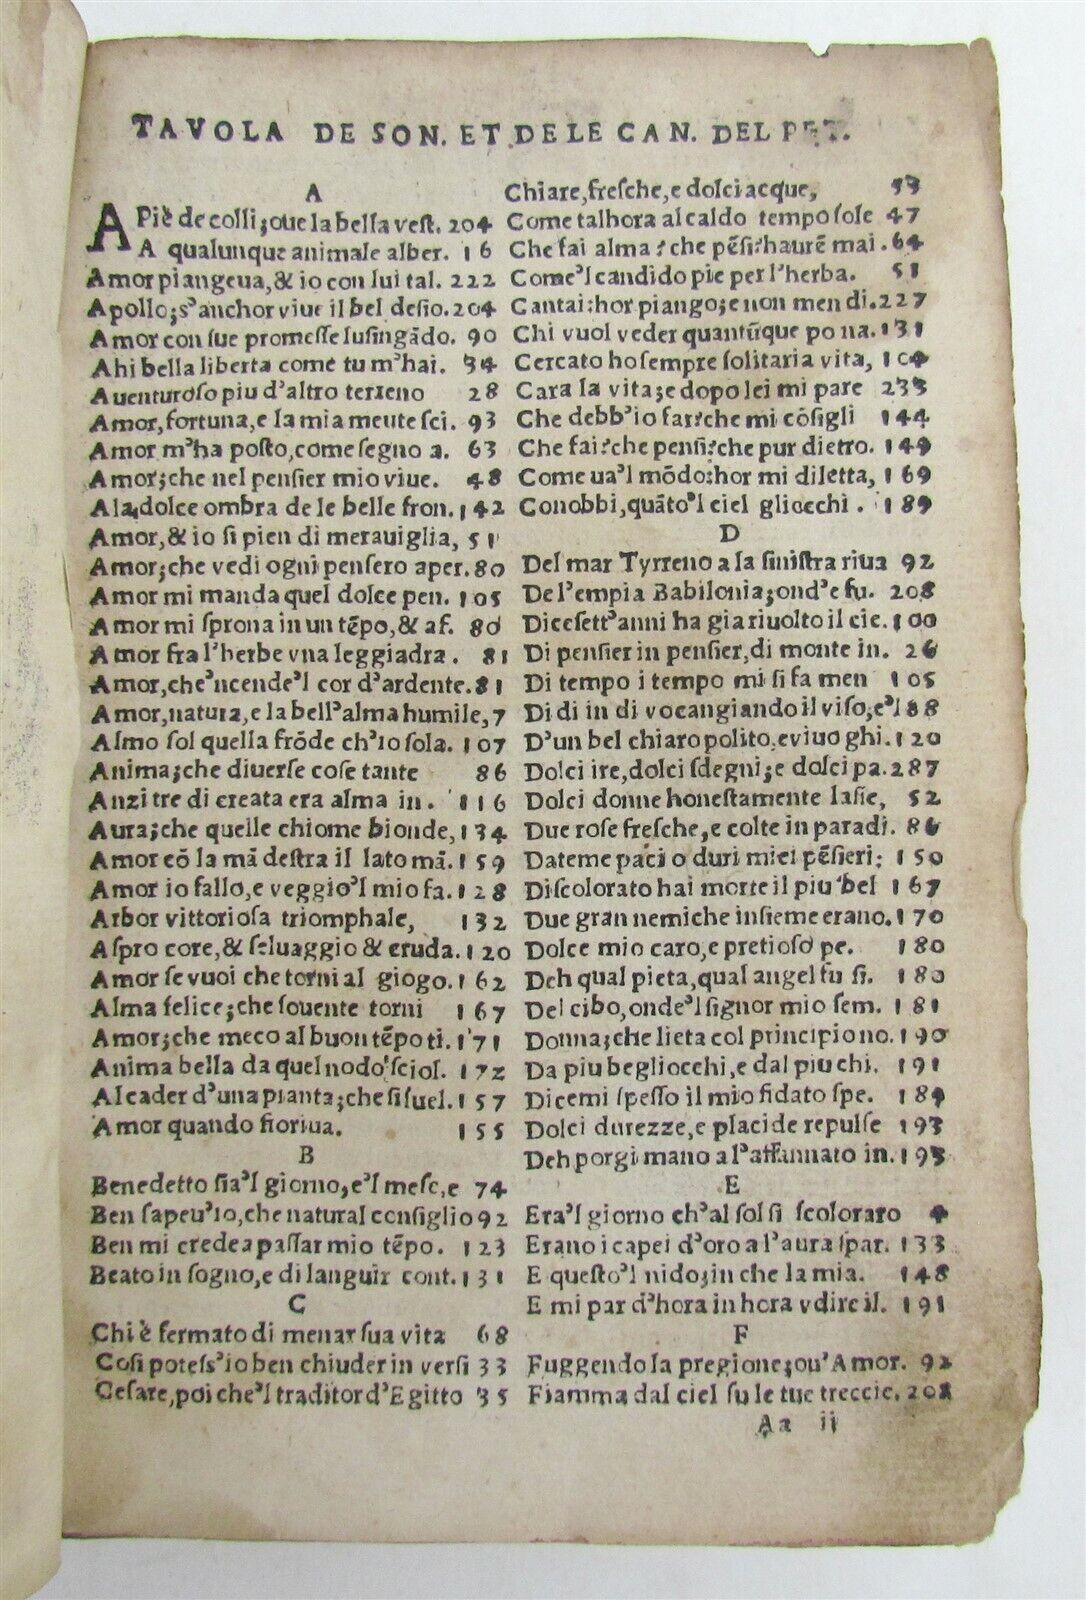 TAVOLA DE SON. ET DE LE CAN. DEL PET.
A
A Piè de colli; oue la bella veſt. 204
A qualunque animale alber. 16
Amor piangeua, & io con lui tal. 222
Apollo; s'anchor viue il bel deſio. 204
Amor con ſue promeſſe luſingãdo. 90
Ahi bella liberta come tu m'hai. 34
Auenturoſo piu d'altro terreno 28
Amor, fortuna, e la mia meute ſci. 93
Amor m'ha poſto, come ſegno a. 63
Amor; che nel penſier mio viue. 48
A la dolce ombra de le belle fron. 142
Amor, & io ſi pien di merauiglia, 51
Amor; che vedi ogni penſero aper. 80
Amor mi manda quel dolce pen. 105
Amor mi ſprona in un tẽpo, & af. 80
Amor fra l'herbe vna leggiadra. 81
Amor, che'ncende'l cor d'ardente. 81
Amor, natura, e la bell'alma humile, 7
Almo ſol quella frõde ch'io ſola. 107
Anima; che diuerſe coſe tante 86
Anzi tre di creata era alma in. 116
Aura; che quelle chiome bionde, 134
Amor cõ la mã deſtra il lato mã. 159
Amor io fallo, e veggio'l mio fa. 128
Arbor vittorioſa triomphale, 132
Aſpro core, & ſeluaggio & cruda. 120
Amor ſe vuoi che torni al giogo. 162
Alma felice; che ſouente torni 167
Amor; che meco al buon tẽpo ti. 171
Anima bella da quel nodo ſciol. 172
Al cader d'una pianta; che ſi ſuel. 157
Amor quando fioriua. 155
B
Benedetto ſia'l giorno, e'l meſe, e 74
Ben ſapeu'io, che natural conſiglio 92
Ben mi credea paſſar mio tẽpo. 123
Beato in ſogno, e di languir cont. 131
C
Chi è fermato di menar ſua vita 68
Coſi poteſs'io ben chiuder in verſi 33
Ceſare, poi che'l traditor d'Egitto 35
Chiare, freſche, e dolci acque, 53
Come talhora al caldo tempo ſole 47
Che fai alma? che pẽſi? haurẽ mai. 64
Come'l candido pie per l'herba. 51
Cantai: hor piango; e non men di. 227
Chi vuol veder quantũque po na. 131
Cercato ho ſempre ſolitaria vita, 104
Cara la vita; e dopo lei mi pare 233
Che debb'io far? che mi cõſigli 144
Che fai? che penſi? che pur dietro. 149
Come ua'l mõdo: hor mi diletta, 169
Conobbi, quãto'l ciel gliocchi. 189
D
Del mar Tyrreno a la ſiniſtra riua 92
De l'empia Babilonia; ond'e fu. 208
Diceſett'anni ha gia riuolto il cie. 100
Di penſier in penſier, di monte in. 26
Di tempo i tempo mi ſi fa men 105
Di di in di vo cangiando il viſo, e'l 88
D'un bel chiaro polito, e viuo ghi. 120
Dolci ire, dolci ſdegni; e dolci pa. 287
Dolci donne honeſtamente laſſe, 52
Due roſe freſche, e colte in paradi. 86
Datemi paci o duri miei pẽſieri: 150
Diſcolorato hai morte il piu bel 167
Due gran nemiche inſieme erano. 170
Dolce mio caro, e pretioſo pe. 180
Deh qual pieta, qual angel fu ſi. 180
Del cibo, onde'l ſignor mio ſem. 181
Donna; che lieta col principio no. 190
Da piu begliocchi, e dal piu chi. 191
Dicemi ſpeſſo il mio fidato ſpe. 184
Dolci durezze, e placide repulſe 193
Deh porgi mano a l'affannato in. 193
E
Era'l giorno ch'al ſol ſi ſcoloraro 4
Erano i capei d'oro a l'aura ſpar. 133
E queſto'l nido; in che la mia. 148
E mi par d'hora in hora vdire il. 191
F
Fuggendo la pregione; ou'Amor. 92
Fiamma dal ciel ſu le tue treccie. 208
Aa ii